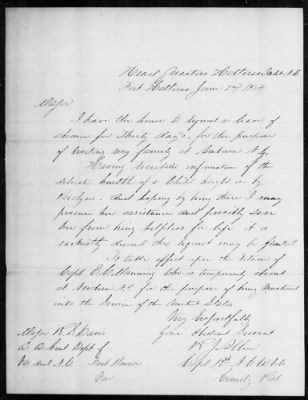 Head Quarters Hatteras Inlet N.C.
Fort Hatteras June 2nd 1864
Major
I have the honor to request a leave of
absence for Thirty days, for the purpose
of visiting my family at Auburn N.Y.
Having received information of the
delicate health of a
and hoping by being there I may
procure her assistance and possibly save
her from being helpless for life I
earnestly desire this request may be granted
To take effect upon the return of
Capt who is temporarily absent
at Newbern N.C. for the purpose of being mustered
into the Service of the United States
Very Respectfully
Your Obedient Servant
Major R. S. Davis
A. A. Genl Dept of
Va and N.C. Fort Monroe
Va
Capt
Comdg Post